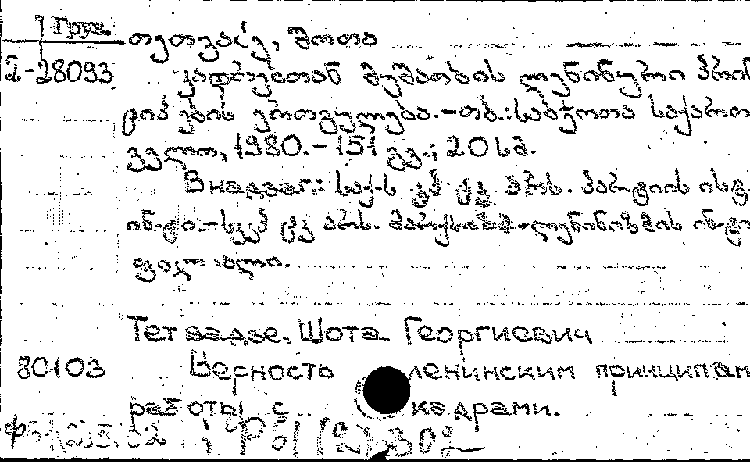 Груз.
თეთვაძე, შოთა
2-28093 კადრებთან მუშაობის ლენინური პრინ
ციპების ერთგულება.-თბ.:საბჭოთა საქართ
ველო, 1980.-151 გვ.; 20 სმ.
В надзаг.: საქ-ს კპ ცკ პარტიის ისტ.
ინ-ტი-სკკპ ცკ მარქსიზმ-ლენინიზმის ინ-ტი
ფილიალი.
Тетвадзе, Шота Георгиевич
80103 Верность ленинским принципам
работы с кадрами.